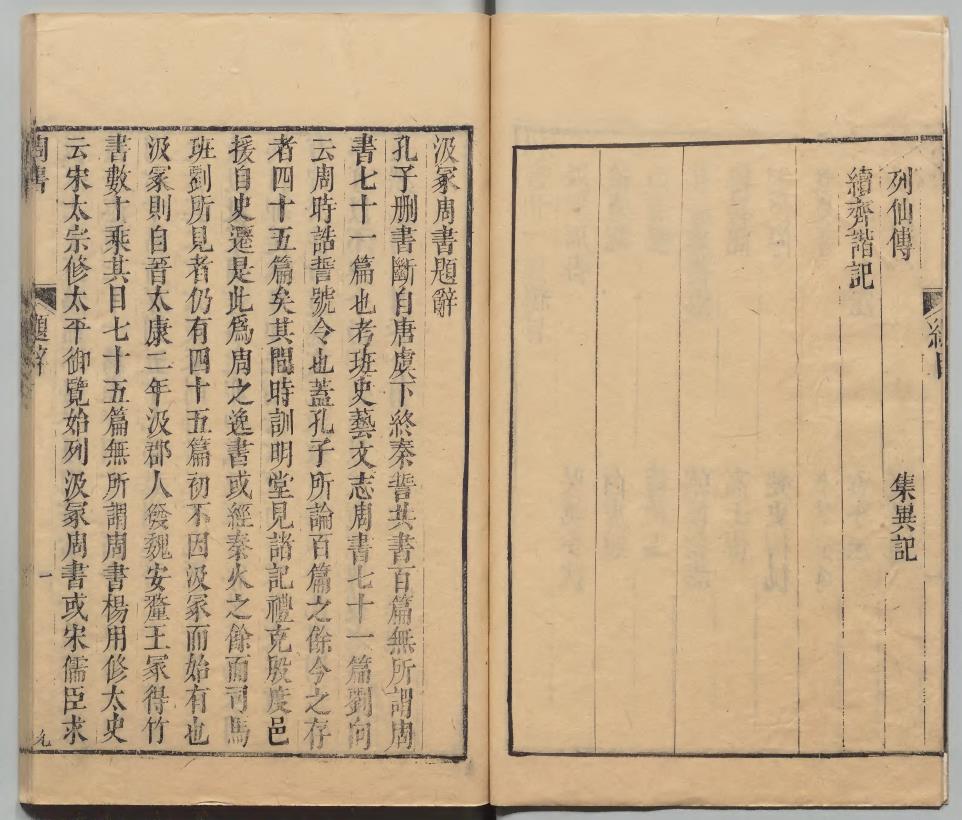 列仙傳 集異記
續齊諧記
汲冢周書題辭
孔子刪書斷自唐虞下終秦誓共書百篇無所謂周
書七十一篇也考班史藝文志周書七十一篇劉向
云周時誥誓號令也蓋孔子所論百篇之餘今之存
者四十五篇矣其間時訓明堂見諸記禮克殷度邑
援自史遷是此爲周之逸書或經秦火之餘而司馬
班劉所見者仍有四十五篇初不因汲冢而始有也
汲冢則自晉太康二年汲郡人發魏安釐王冢得竹
書數十乘其目七十五篇無所謂周書楊用修太史
云宋太宗修太平御覽始列汲冢周書或宋儒臣求
周書 題辭 一